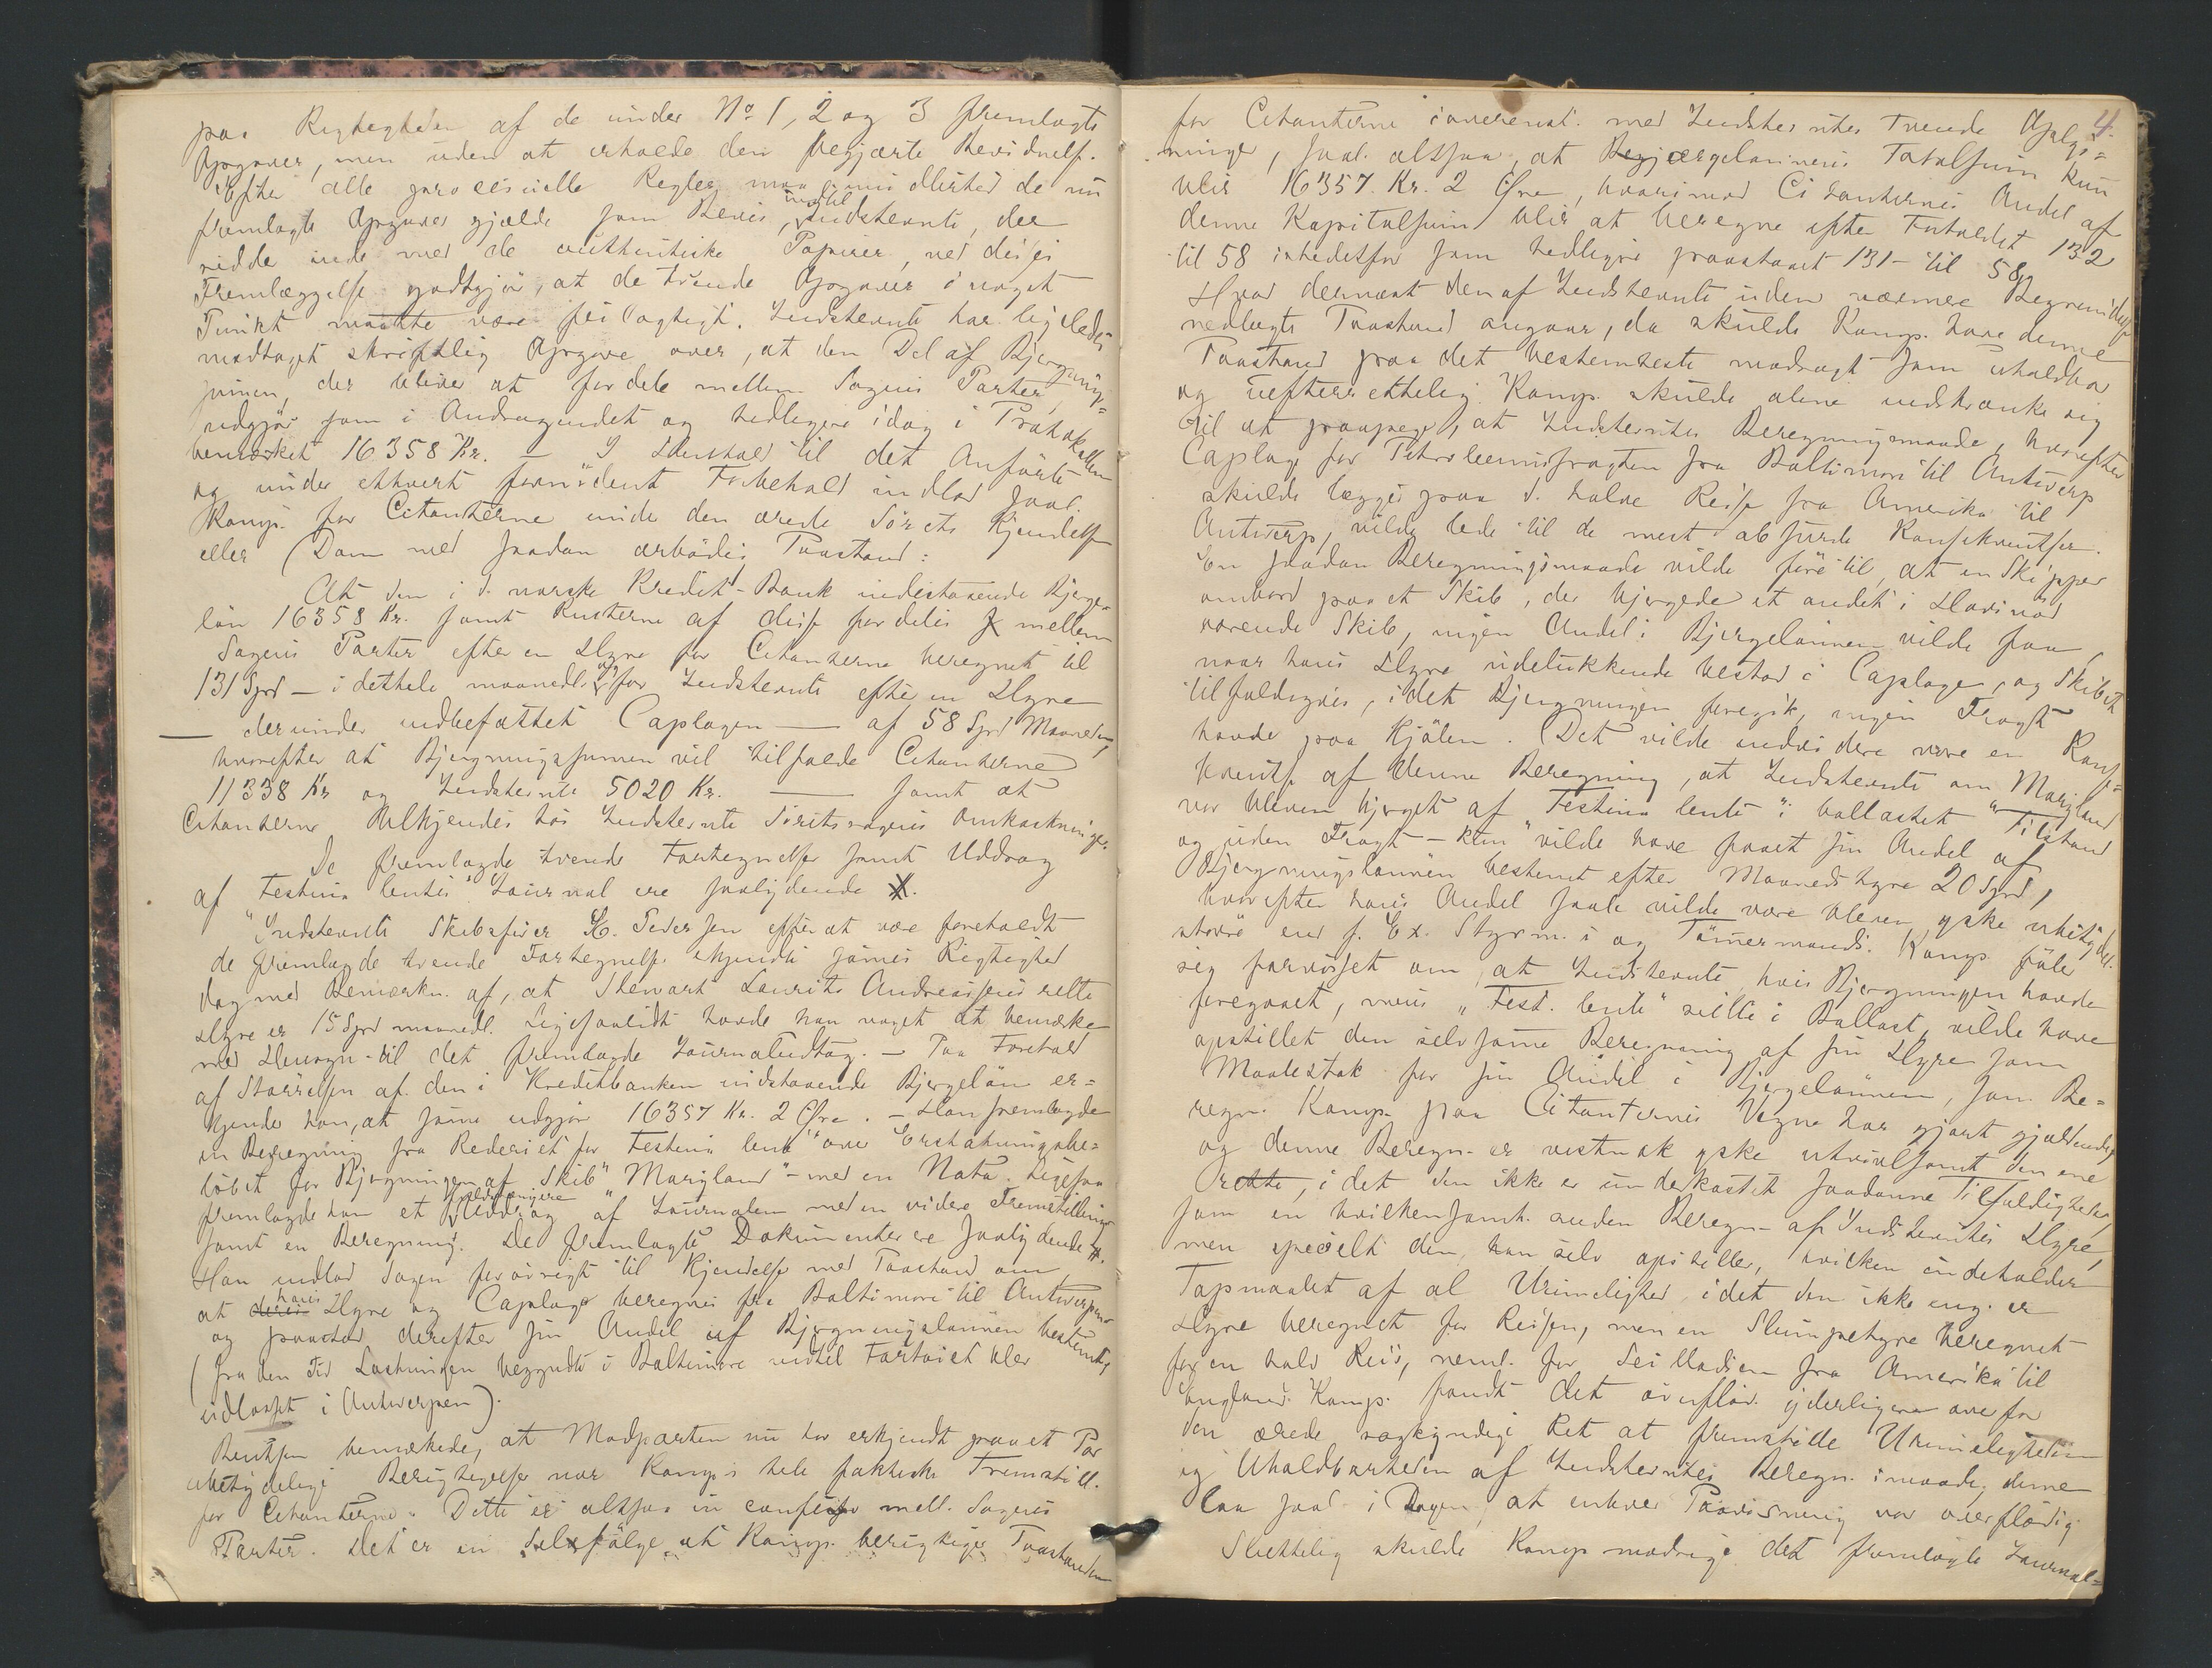 paa Rigtigheden af de under No 1, 2 og 3 fremlagte
Opgaver, men uden at erholde den begjærte Bevidnelse.
Efter alle processuelle Regler maa imidlertid de nu
fremlagte Opgaver gjælde som Bevis, indtil Indstevnte, der
sidder inde med de authentiske Papirer, ved disses
Fremlæggelse godtgjør, at de tvende Opgaver i noget
Punkt maatte være feilagtigt. Indstevnte har ligeledes
modtaget skriftlig Opgave over, at den Del af Bjergnings=
summen, der bliver at fordele mellem Sagens Parter,
udgjør som i Andragendet og tidligere idag i Protokollen
bemærket 16358 Kr. — I Henhold til det Anførte
og under ethvert fornødent Forbehold indlod saal.
Komp. for Citanterne under den ærede Sørets Kjendelse
eller Dom med saadan ærbødig Paastand:
At den i d. norske Kredit-Bank indestaaende Bjerge-
løn 16358 Kr. samt Renterne af disse fordeles mellem
Sagens Parter efter en Hyre for Citanterne beregnet til
131 Spd — i dethele maanedl. og for Indstevnte efter en Hyre
— derunder indbefattet Caplagen — af 58 Spd Maaneden,
hvorefter at Bjergningssummen vil tilfalde Citanterne
11338 Kr og Indstevnte 5020 Kr. — samt at
Citanterne tilkjendes hos Indstevnte Søretssagens Omkostninger.
De fremlagde tvende Fortegnelser samt Uddrag
af "Festina lentes" Journal ere saalydende X.
Indstevnte Skibsfører H. Pedersen efter at være foreholdt
de fremlagde tvende Fortegnelser erkjendte sammes Rigtighed
dog med Bemærkn. af, at Stewart Laurits Andreassens rette
Hyre er 15 Spd maanedl. Ligesaalidt havde han noget at bemærke
med Hensyn til det fremlagde Journaludtog. — Paa Forehold
af Størrelsen af den i Kreditbanken indstaaende Bjergeløn er=
kjender han, at samme udgjør 16357 Kr. 2 Øre. — Han fremlagde
en Beregning fra Rederiet for "Festina lente" over Erstatningsbe=
løbet for Bjergningen af Skib "Maryland" — med en Nota. Ligesaa
fremlagde han et fuldstændigere Uddrag af Journalen med en videre Fremstilling
samt en Beregning. De fremlagte Dokumenter ere saalydende X.
Han indlod Sagen forøvrigt til Kjendelse med Paastand om
at deres hans Hyre og Caplage beregnes fra Baltimore til Antwerpen
og paastod derefter sin Andel af Bjergningslønnen bestemt
(fra den Tid Lastningen begyndte i Baltimore indtil Fartøiet blev
udlosset i Antwerpen).
Bentsen bemærkede, at Modparten nu har erkjendt paa et Par
ubetydelige Berigtigelser nær Komp's hele faktiske Fremstill.
for Citanterne. Dette er altsaa in confesso mell. Sagens
Parter. Det er en Selvfølge at Komp. berigtiger Paastanden
4.
for Citanterne i overenst. med Indstevntes tvende Oplys=
ninger, saal. altsaa, at Bjergelønnens Totalsum kun
blir 16357 Kr. 2 Øre, hvorimod Citanternes Andel af
denne Kapitalsum blir at beregne efter Forholdet 132
til 58 istedetfor som tidligere paastaaet 131 — til 58.
Hvad dernæst den af Indstevnte uden nærmere Begrundelse
nedlagte Paastand angaar, da skulde Komp. have denne
Paastand paa det bestemteste modsagt som uholdbar
og uefterrettelig. Komp. skulde alene indskrænke sig
til at paapege, at Indstevntes Beregningsmaade, hvorefter
Caplag for Petroleumsfragten fra Baltimore til Antwerp
skulde lægges paa d. halve Reise fra Amerika til
Antwerp, vilde lede til de mest absurde Konsekventser.
En saadan Beregningsmaade vilde føre til, at en Skipper
ombord paa et Skib, der bjergede et andet i Havsnød
værende Skib, ingen Andel i Bjergelønnen vilde faa,
naar hans Hyre udelukkende bestod i Caplage, og Skibet
tilfældigvis, idet Bjergningen foregik, ingen Fragt
havde paa Kjølen. Det vilde endvidere være en Konse=
kvents af denne Beregning, at Indstevnte om Maryland
var bleven bjerget af "Festina lente" i ballastet Tilstand
og uden Fragt — kun vilde have faaet sin Andel af
Bjergningslønnen bestemt efter Maanedshyre 20 Spd,
hvorefter hans Andel saale vilde være bleven ganske ubetydel.
større end f. Ex. Styrm.s og Tømmermands. Komp. føler
sig forvisset om, at Indstevnte, hvis Bjergningen havde
foregaaet, mens "Fest. lente" seilte i Ballast, vilde have
opstillet den selvsamme Beregning af sin Hyre som
Maalestok for sin Andel i Bjergelønnen, som Be=
regn. Komp. paa Citanternes Vegne har gjort gjældende,
og denne Beregn. er vistnok ganske utvivlsomt den ene
rette, idet den ikke er underkastet saadanne Tilfældigheder,
som en hvilkensomh. anden Beregn. af Indstevntes Hyre,
men specielt den, han selv opstiller, hvilken indeholder
Topmaalet af al Urimelighed, idet den ikke eng. er
Hyre beregnet for Reisen, men en Slumpehyre beregnet
for en halv Reise, neml. for Seiladsen fra Amerika til
England. Komp. fandt det overflød. yderligere overfor
den ærede sagkyndige Ret at fremstille Urimeligheden
og Uholdbarheden af Indstevntes Beregn.smaade, denne
laa saal. i Dagen, at enhver Paavisning var overflødig.
Slutteligt skulde Komp modsige det fremlagte Journal=